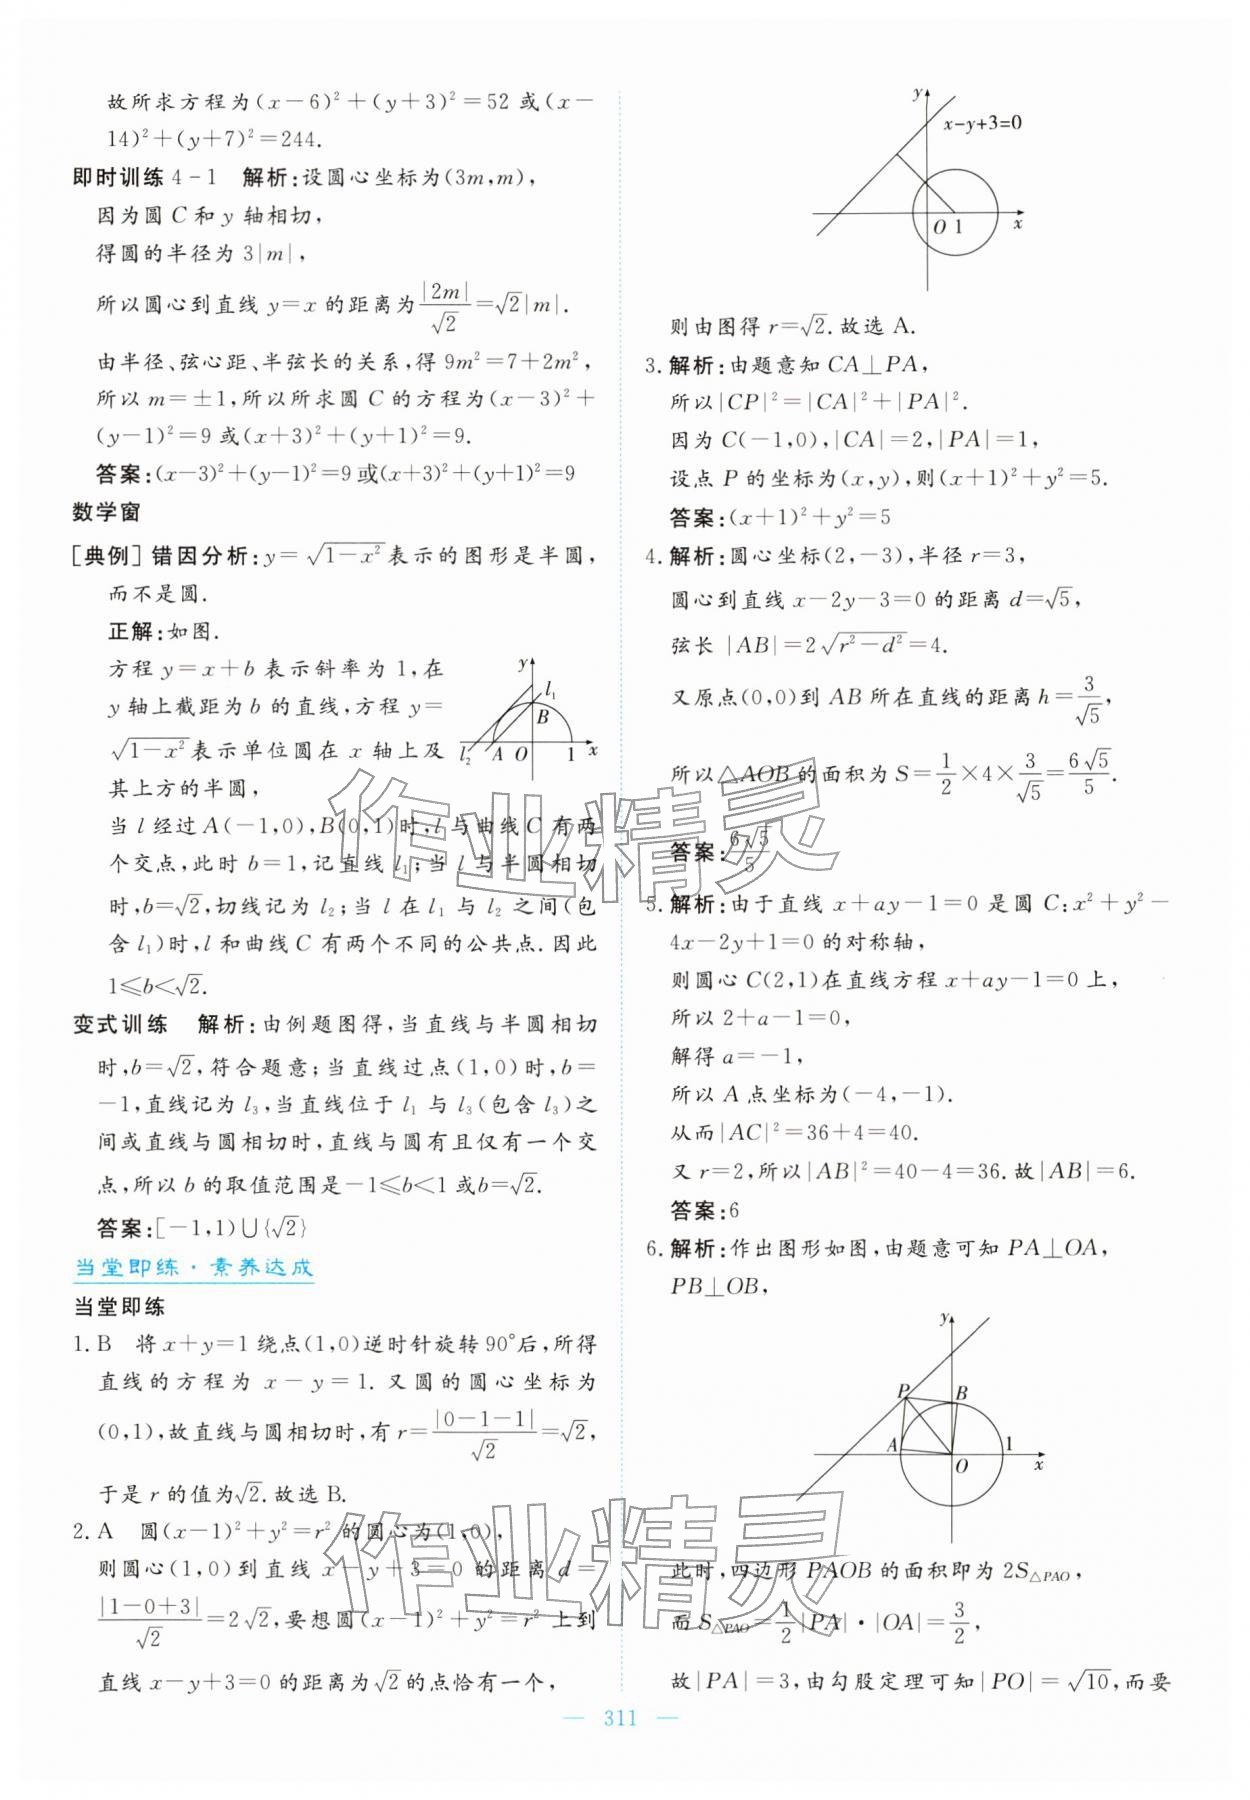 故所求方程为(x-6)²+(y+3)²=52 或(x-
14)²+(y+7)²=244.
即时训练 4-1　解析:设圆心坐标为(3m,m),
因为圆 C 和 y 轴相切,
得圆的半径为 3|m|,
所以圆心到直线 y=x 的距离为|2m|/√2=√2|m|.
由半径、弦心距、半弦长的关系,得 9m²=7+2m²,
所以 m=±1,所以所求圆 C 的方程为(x-3)²+
(y-1)²=9 或(x+3)²+(y+1)²=9.
答案:(x-3)²+(y-1)²=9 或(x+3)²+(y+1)²=9
数学窗
[典例] 错因分析:y=√(1-x²)表示的图形是半圆,
而不是圆.
正解:如图.
方程 y=x+b 表示斜率为 1,在
y 轴上截距为 b 的直线,方程 y=
√(1-x²)表示单位圆在 x 轴上及
其上方的半圆,
y
l₁
B
l₂ A O 1 x
当 l 经过 A(-1,0),B(0,1)时,l 与曲线 C 有两
个交点,此时 b=1,记直线 l₁;当 l 与半圆相切
时,b=√2,切线记为 l₂;当 l 在 l₁ 与 l₂ 之间(包
含 l₁)时,l 和曲线 C 有两个不同的公共点.因此
1≤b<√2.
变式训练　解析:由例题图得,当直线与半圆相切
时,b=√2,符合题意;当直线过点(1,0)时,b=
-1,直线记为 l₃,当直线位于 l₁ 与 l₃(包含 l₃)之
间或直线与圆相切时,直线与圆有且仅有一个交
点,所以 b 的取值范围是-1≤b<1 或b=√2.
答案:[-1,1)∪{√2}
当堂即练·素养达成
当堂即练
1. B　将 x+y=1 绕点(1,0)逆时针旋转 90°后,所得
直线的方程为 x-y=1. 又圆的圆心坐标为
(0,1),故直线与圆相切时,有 r=|0-1-1|/√2=√2,
于是 r 的值为√2.故选 B.
2. A　圆(x-1)²+y²=r² 的圆心为(1,0),
则圆心(1,0)到直线 x-y+3=0 的距离 d=
|1-0+3|/√2=2√2,要想圆(x-1)²+y²=r² 上到
直线 x-y+3=0 的距离为√2的点恰有一个,
y
x-y+3=0
O 1 x
则由图得 r=√2.故选 A.
3. 解析:由题意知 CA⊥PA,
所以|CP|²=|CA|²+|PA|².
因为 C(-1,0),|CA|=2,|PA|=1,
设点 P 的坐标为(x,y),则(x+1)²+y²=5.
答案:(x+1)²+y²=5
4. 解析:圆心坐标(2,-3),半径 r=3,
圆心到直线 x-2y-3=0 的距离 d=√5,
弦长 |AB|=2√(r²-d²)=4.
又原点(0,0)到 AB 所在直线的距离 h=3/√5,
所以△AOB 的面积为 S=1/2×4×3/√5=6√5/5.
答案:6√5/5
5. 解析:由于直线 x+ay-1=0 是圆 C:x²+y²-
4x-2y+1=0 的对称轴,
则圆心 C(2,1)在直线方程 x+ay-1=0 上,
所以 2+a-1=0,
解得 a=-1,
所以 A 点坐标为(-4,-1).
从而|AC|²=36+4=40.
又 r=2,所以|AB|²=40-4=36.故|AB|=6.
答案:6
6. 解析:作出图形如图,由题意可知 PA⊥OA,
PB⊥OB,
y
P B
A 1
O x
此时,四边形 PAOB 的面积即为 2S△PAO,
而 S△PAO=1/2|PA|·|OA|=3/2,
故|PA|=3,由勾股定理可知|PO|=√10,而要
— 311 —
作业精灵
作业精灵